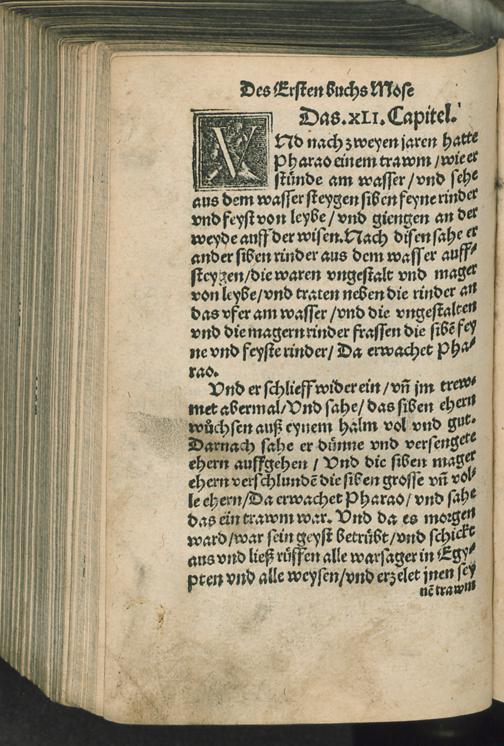 Des Ersten buchs Mose
Das.xLI.Capitel.
VNd nach zweyen jaren hatte
Pharao einem trawm /wie er
stünde am wasser /vnd sehe
aus dem wasser steygen siben feyne rinder
vnd feyst von leybe / vnd giengen an der
weyde auff der wisen. Nach disen sahe er
ander siben rinder aus dem wasser auff⸗
steygen/die waren vngestalt vnd mager
von leybe/vnd traten neben die rinder an
das vfer am wasser /vnd die vngestalten
vnd die magern rinder frassen die sibē fey
ne vnd feyste rinder/ Da erwachet Pha⸗
rao.
Vnd er schlieff wider ein / vñ jm trew⸗
met abermal/Vnd sahe/das siben ehern
wůchsen auß eynem halm vol vnd gut.
Darnach sahe er dünne vnd versengete
ehern auffgehen / Vnd die siben mager
ehern verschlundē die siben grosse vñ vol⸗
le ehern/Da erwachet Pharao/ vnd sahe
das ein trawm war. Vnd da es morgen
ward/war sein geyst betrübt/vnd schickt
aus vnd ließ růffen alle warsager in Egy⸗
pten vnd alle weysen/vnd erzelet jnen sey
nē trawm